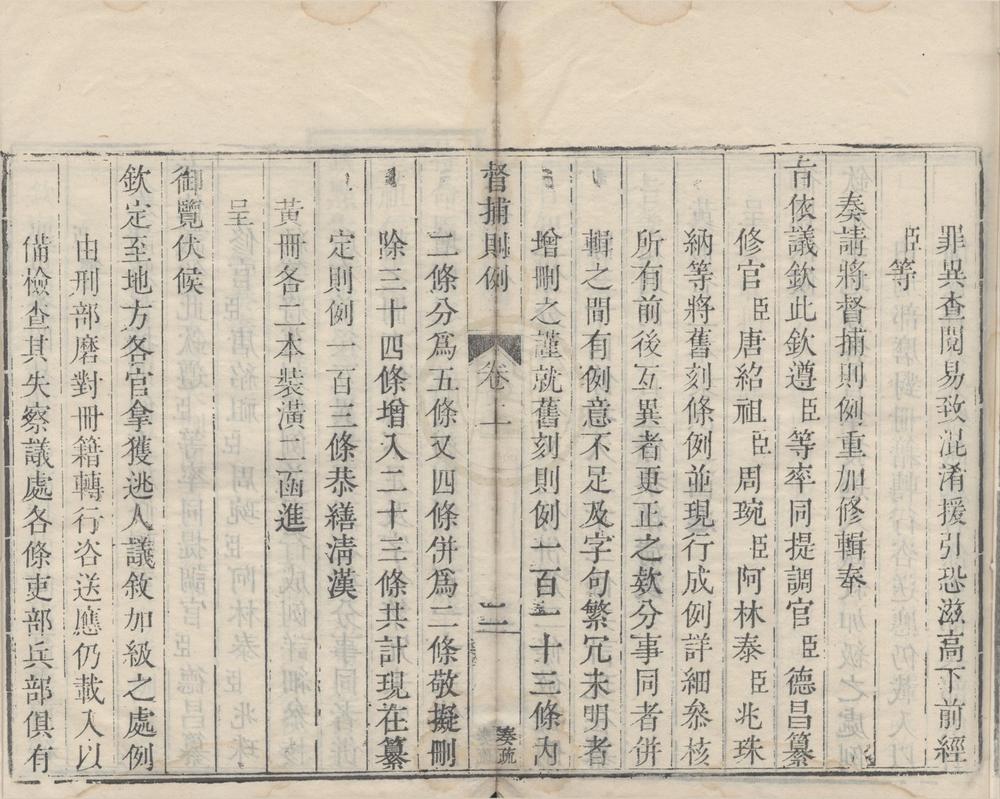 罪異查閱易致混淆援引恐滋高下前經
臣等
奏請將督捕則例重加修輯奉
旨依議欽此欽遵臣等率同提調官臣德昌纂
修官臣唐紹祖臣周琬臣阿林泰臣兆珠
納等將舊刻條例並現行成例詳細叅核
所有前後互異者更正之欵分事同者併
輯之間有例意不足及字句繁冗未明者
增刪之謹就舊刻則例一百一十三條內
督捕則例 卷上 二 奏疏
二條分爲五條又四條併爲二條敬擬刪
除三十四條增入二十三條共計現在纂
定則例一百三條恭繕清漢
黃冊各二本裝潢二函進
呈
御覽伏候
欽定至地方各官拿獲逃人議敘加級之處例
由刑部磨對冊籍轉行咨送應仍載入以
備檢查其失察議處各條吏部兵部俱有